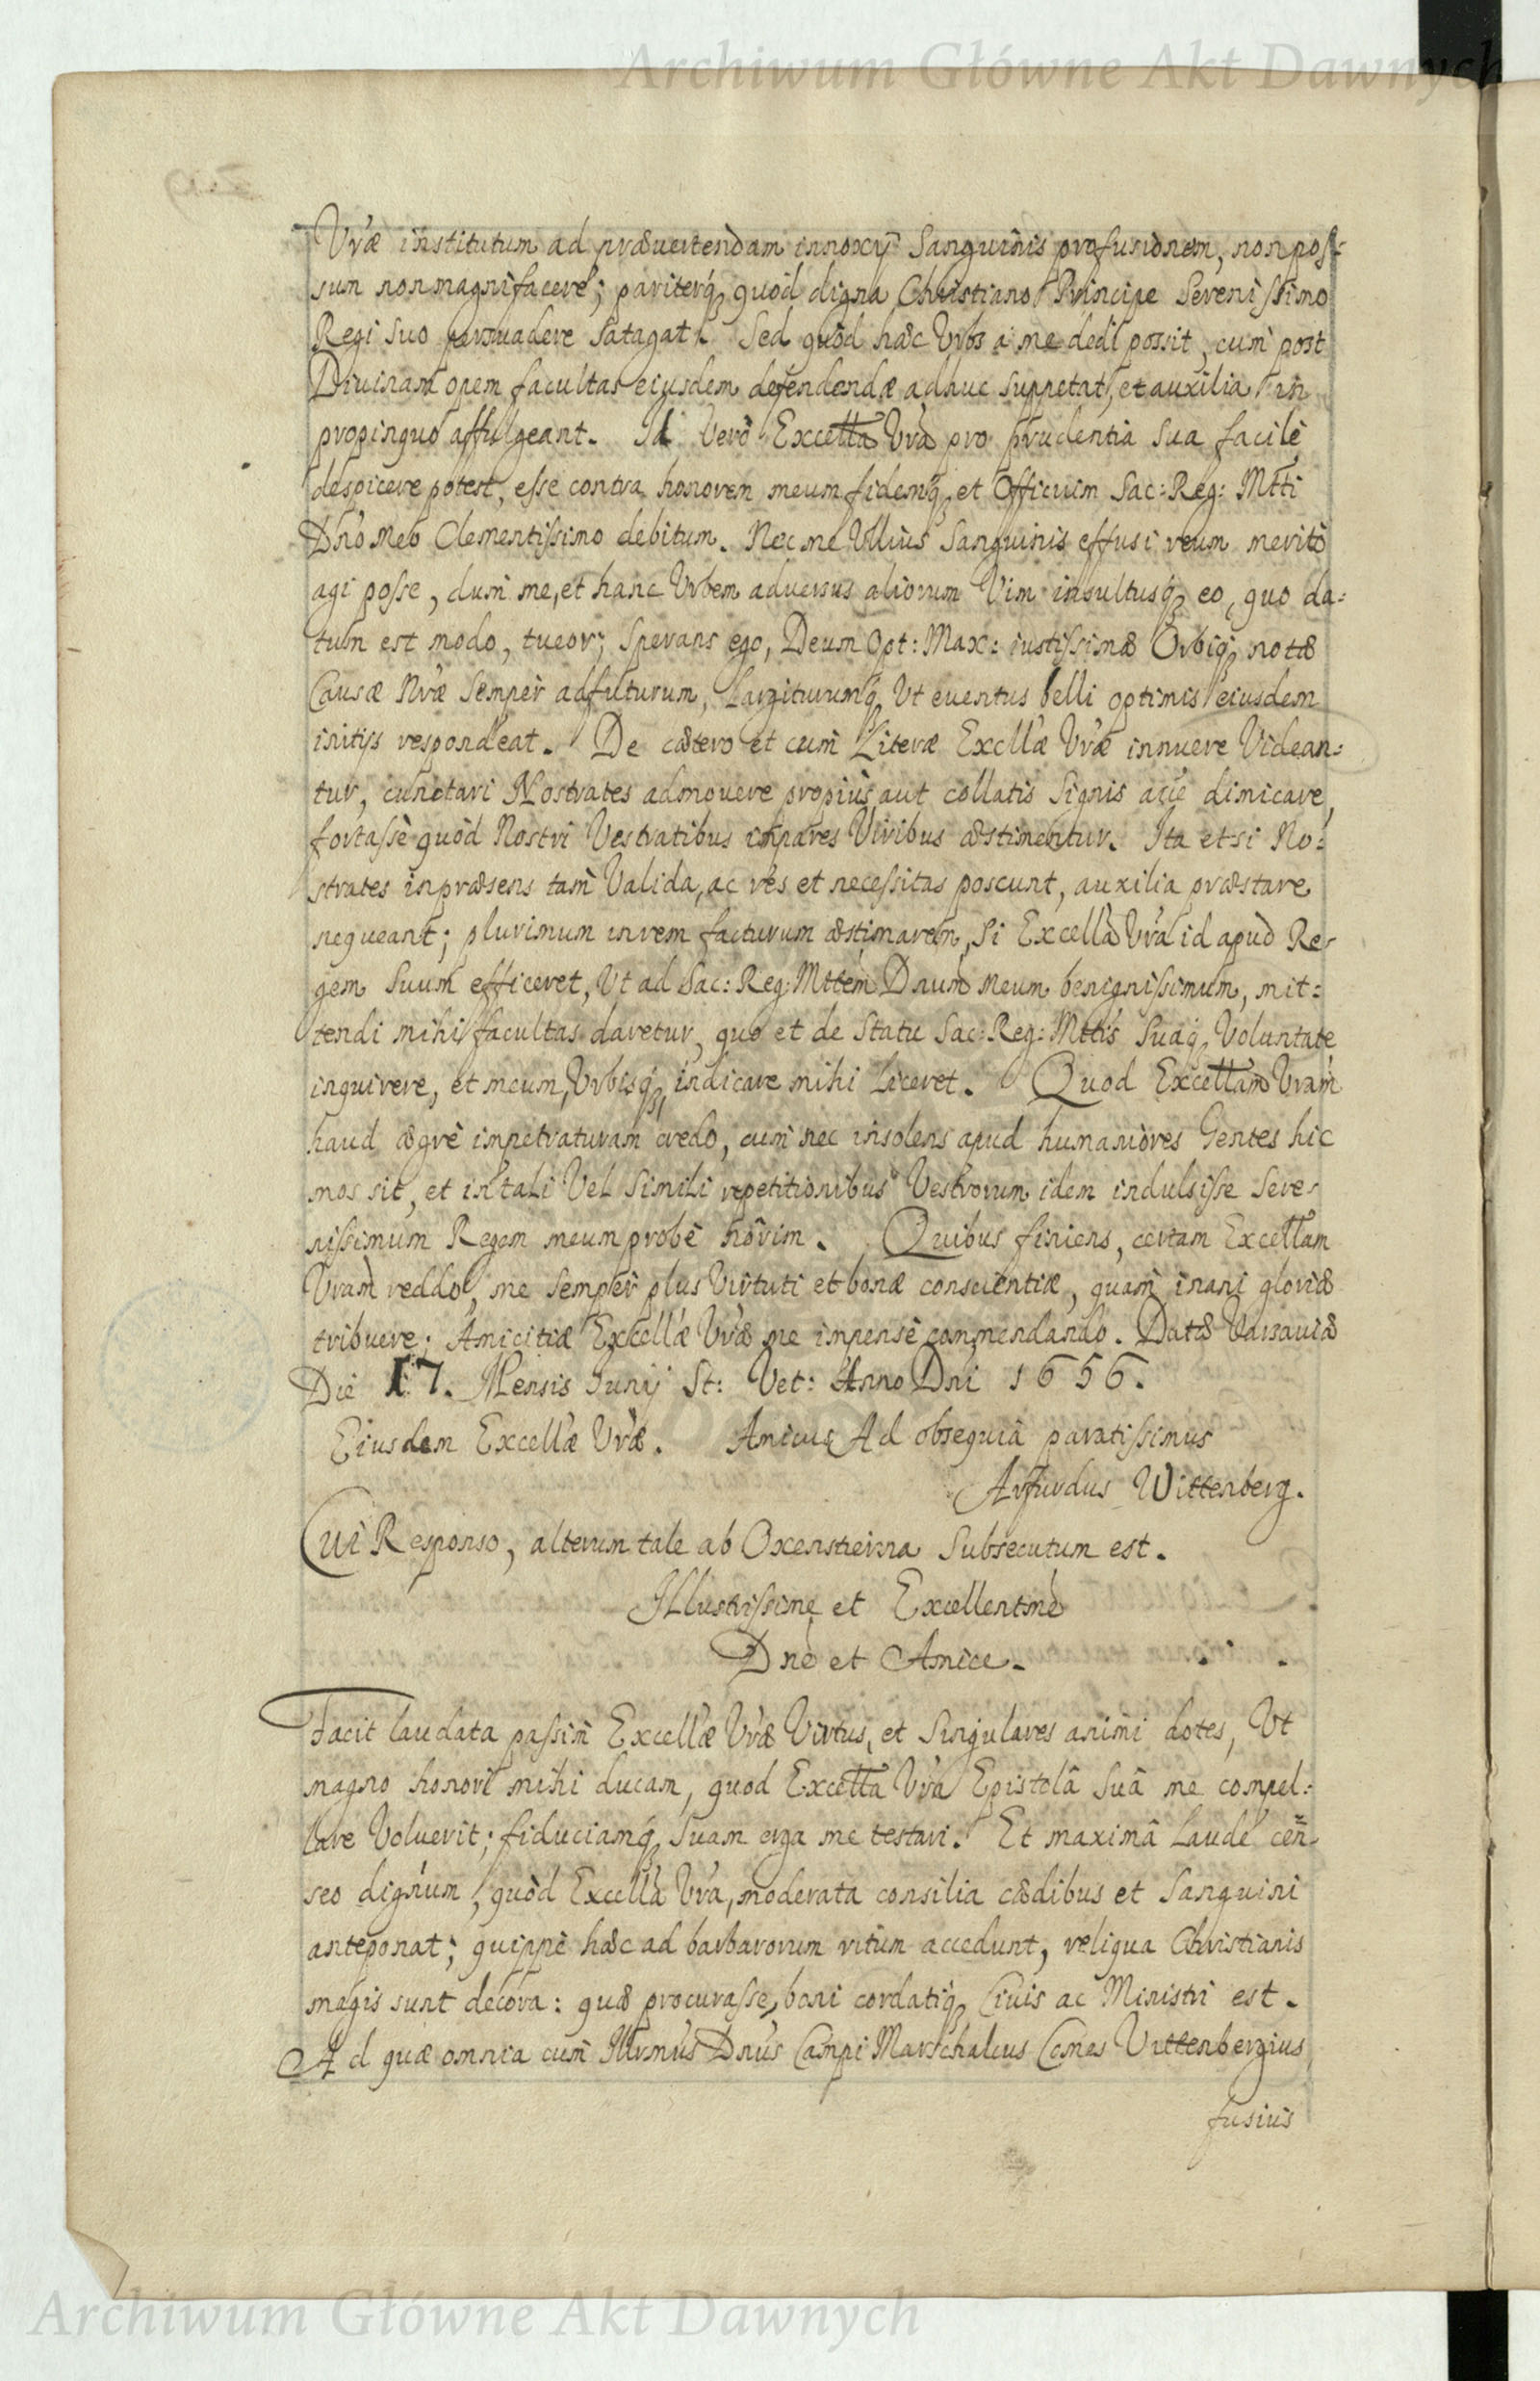 Archiwum Główne Akt Dawnych
Vræ institutum ad prævertendam innoxij Sanguinis profusionem, non pos-
sum non magnifacere; pariterq; quod digna Christiano Principe Serenissimo
Regi suo persuadere satagat. Sed quòd hæc Urbs a me dedi possit, cum post
Divinam opem facultas eiusdem defendendæ adhuc suppetat, et auxilia in
propinquo affulgeant. Id verò Excellta Vra pro prudentia sua facilè
despicere potest, esse contra honorem meum fidemq; et Officium Sac: Reg: Mtti
Dno Meo Clementissimo debitum. Nec me Ullius Sanguinis effusi reum meritò
agi posse, dum me, et hanc Urbem adversus aliorum Vim insultusq; eo, quo da:
tum est modo, tueor; Sperans ego, Deum Opt: Max: iustissimæ Orbiq; notæ
Causæ Nræ Semper adfuturum, Largiturumq; Ut eventus belli optimis eiusdem
initijs respondeat. De cætero et cum Literæ Excllæ Vræ innuere Videan:
tur, cunctari Nostrates admovere propiùs, aut collatis Signis acie dimicare,
fortassè quòd Nostri Vestratibus impares Viribus æstimentur. Ita etsi No:
strates in præsens tam Valida, ac res et necessitas poscunt, auxilia præstare
nequeant; plurimum in rem facturum æstimarem, Si Excella Vra id apud Re-
gem Suum efficeret, Ut ad Sac: Reg: Mttem Dnum Meum benignissimum, mit:
tendi mihi facultas daretur, quo et de Statu Sac: Reg: Mttis Suaq; Voluntate
inquirere, et meum, Urbisq; indicare mihi Liceret. Quod Excelltam Vram
haud ægrè impetraturam credo, cum nec insolens apud humaniores Gentes hic
mos sit, et in tali Vel Simili repetitionibus Vestrorum idem indulsisse Sere-
nissimum Regem meum probè nôrim. Quibus finiens, certam Excelltam
Vram reddo, me Semper plus Virtuti et bonæ conscientiæ, quam inani gloriæ
tribuere; Amicitiæ Excellæ Vræ me impensè commendando. Datæ Varsaviæ
Die 17. Mensis Junij St: Vet: Anno Dni 1656.
Eiusdem Excellæ Vræ. Amicus Ad obsequia paratissimus
Arfurdus Wittenberg.
Cui Responso, alterum tale ab Oxenstierna Subsecutum est.
Illustrissime et Excellentme
Dne et Amice.
Facit laudata passim Excellæ Vræ Virtus, et Singulares animi dotes, Ut
magno honori mihi ducam, quod Excellta Vra Epistolâ Suâ me compel:
lare Voluerit; fiduciamq; Suam erga me testari. Et maximâ Laude cen-
seo dignum, quòd Excella Vra, moderata consilia cædibus et Sanguini
anteponat; quippè hæc ad barbarorum ritum accedunt, reliqua Christianis
magis sunt decora: quæ procurasse, boni cordatiq; Civis ac Ministri est.
Ad quæ omnia cum Illrmus Dnus Campi Marschalcus Comes Vittenbergius
fusius
Archiwum Główne Akt Dawnych